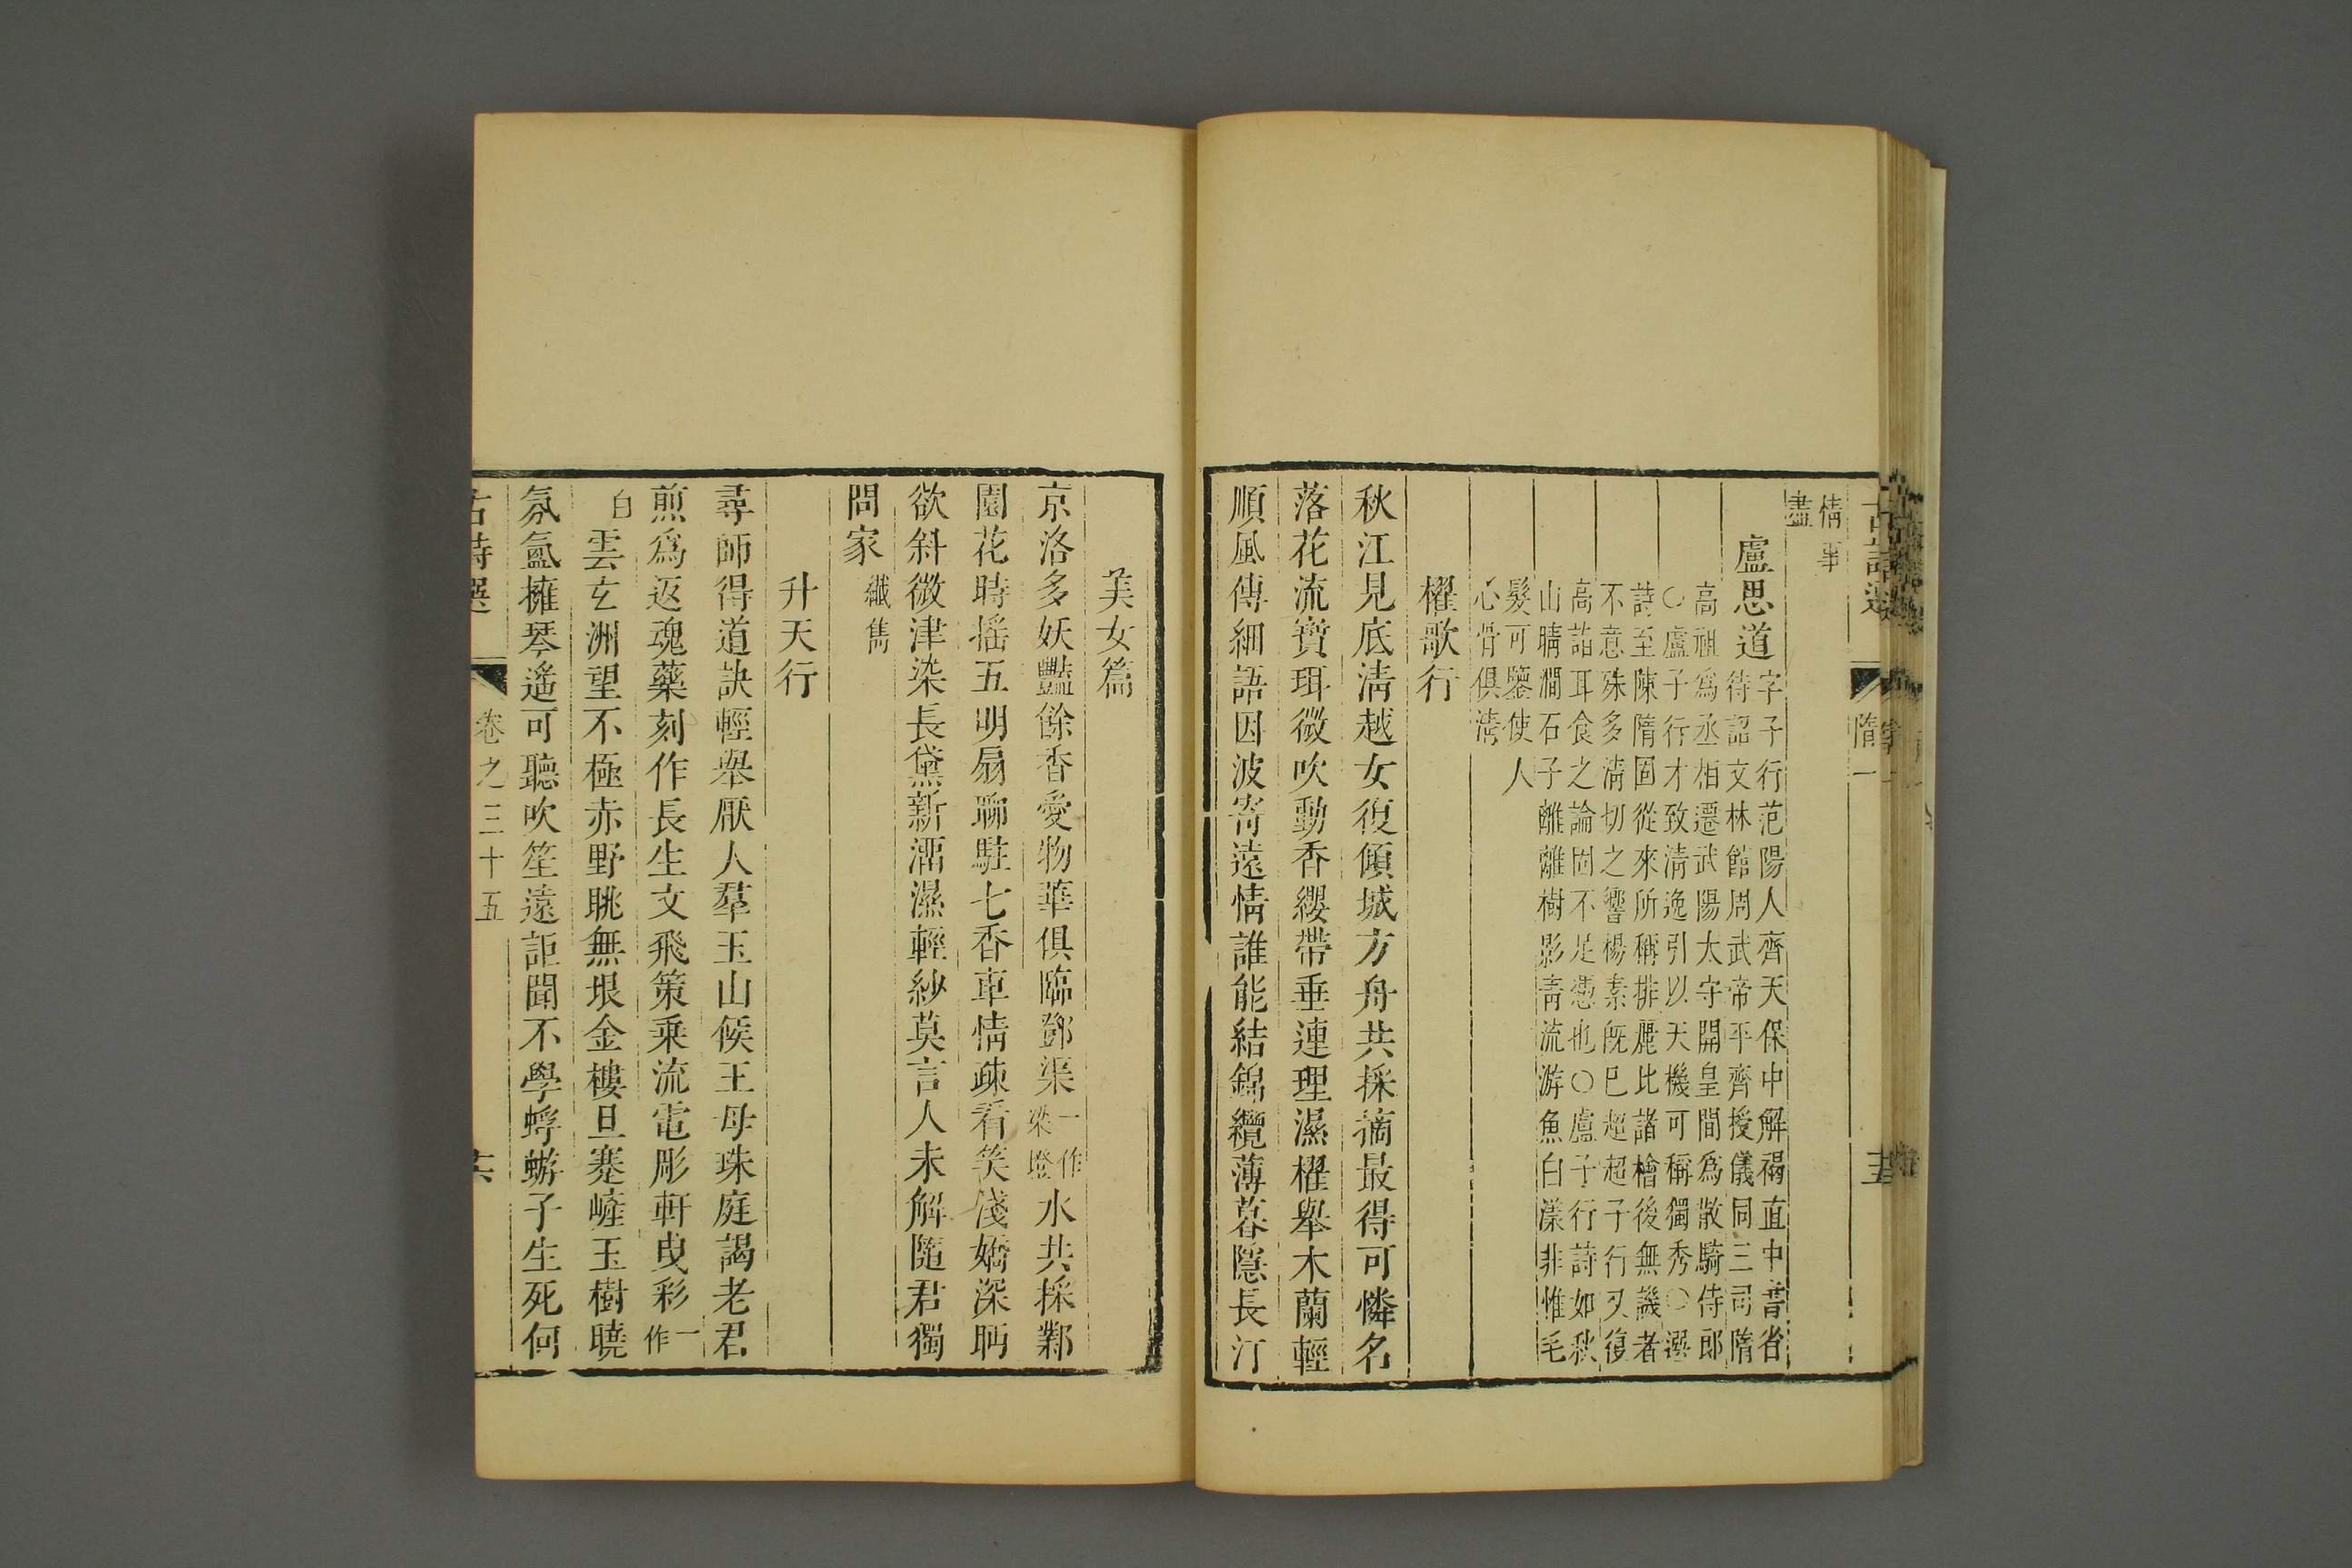 古詩選
隋一
情事
盡
盧思道
字子行范陽人齊天保中解褐直中書省
待詔文林館周武帝平齊授儀同三司隋
高祖爲丞相遷武陽太守開皇間爲散騎侍郎
○盧子行才致清逸引以天機可稱獨秀○選
詩至陳隋固從來所稱排麗比諸檜後無譏者
不意殊多清切之響楊素旣已超超子行又復
高詣耳食之論固不足憑也○盧子行詩如秋
山晴澗石子離離樹影靑流游魚白漾非惟毛
髮可鑒使人
心骨俱清
櫂歌行
秋江見底清越女復傾城方舟共採摘最得可憐名
落花流寶珥微吹動香纓帶垂連理濕櫂舉木蘭輕
順風傳細語因波寄遠情誰能結錦纜薄暮隱長汀
美女篇
京洛多妖豔餘香愛物華俱臨鄧渠一作梁隥水共採鄴
園花時搖五明扇聊駐七香車情疎看笑淺嬌深眄
欲斜微津染長黛新溜濕輕紗莫言人未解隨君獨
問家纖雋
升天行
尋師得道訣輕舉厭人羣玉山候王母珠庭謁老君
煎爲返魂藥刻作長生文飛策乘流電彫軒曳彩一作
白雲玄洲望不極赤野眺無垠金樓旦蹇嵼玉樹曉
氛氳擁琴遙可聽吹笙遠詎聞不學蜉蝣子生死何
古詩選
卷之三十五